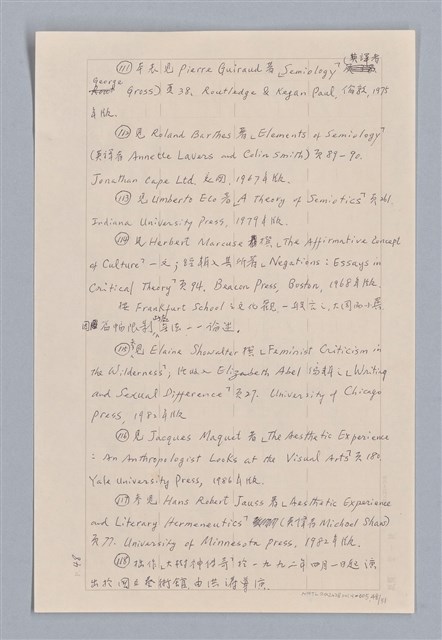 (111) 本表見 Pierre Guiraud 著「Semiology」(英譯者
George Gross) 頁38, Routledge & Kegan Paul, 倫敦, 1975
年版.
(112) 見 Roland Barthes 著「Elements of Semiology」
(英譯者 Annette Lavers and Colin Smith) 頁89-90.
Jonathan Cape Ltd. 1967年版.
(113) 見 Umberto Eco 著「A Theory of Semiotics」頁261.
Indiana University Press, 1979年版.
(114) 見 Herbert Marcuse 撰「The Affirmative Concept
of Culture」一文; 輯入其所著「Negations: Essays in
Critical Theory」頁94. Beacon Press, Boston, 1968年版.
按 Frankfurt School 之文化觀一般言之大同而小異
因篇幅限制 一一論述。
(115) 參見 Elaine Showalter 撰「Feminist Criticism in
the Wilderness」; Elizabeth Abel 編輯之「Writing
and Sexual Difference」頁27. University of Chicago
Press, 1982年版
(116) 見 Jacques Maquet 著「The Aesthetic Experience
: An Anthropologist Looks at the Visual Arts」頁180.
Yale University Press, 1986年版.
(117) 參見 Hans Robert Jauss 著「Aesthetic Experience
and Literary Hermeneutics」(英譯者 Michael Shaw)
頁77. University of Minnesota Press, 1982年版.
(118) 拙作「大樹神傳奇」於一九九二年四月一日起演
出於國立藝術館由洪濤導演.
P. 48